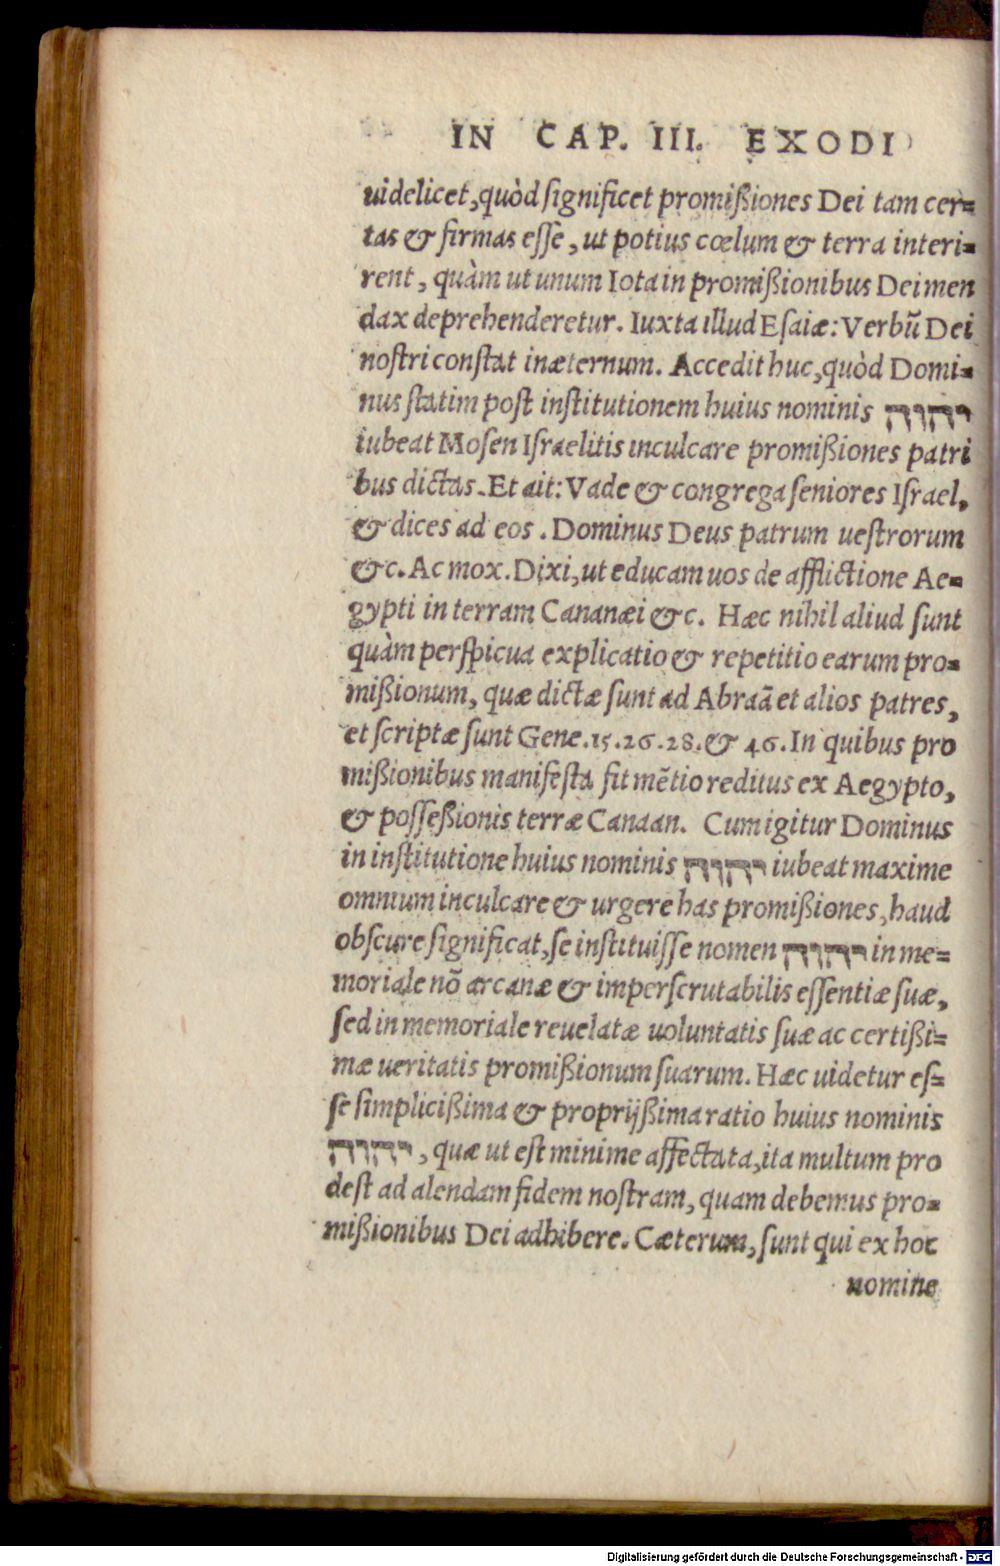 IN CAP. III. EXODI
uidelicet, quòd significet promißiones Dei tam cer=
tas & firmas esse, ut potius cœlum & terra interi=
rent, quàm ut unum Iota in promißionibus Dei men
dax deprehenderetur. Iuxta illud Esaiæ: Verbũ Dei
nostri constat in æternum. Accedit huc, quòd Domi=
nus statim post institutionem huius nominis יהוה
iubeat Mosen Israelitis inculcare promißiones patri
bus dictas. Et ait: Vade & congrega seniores Israel,
& dices ad eos. Dominus Deus patrum uestrorum
&c. Ac mox. Dixi, ut educam uos de afflictione Ae=
gypti in terram Cananæi &c. Hæc nihil aliud sunt
quàm perspicua explicatio & repetitio earum pro=
mißionum, quæ dictæ sunt ad Abraã et alios patres,
et scriptæ sunt Gene.15.26.28.& 46. In quibus pro
mißionibus manifesta fit mẽtio reditus ex Aegypto,
& possessionis terræ Canaan. Cum igitur Dominus
in institutione huius nominis יהוה iubeat maxime
omnium inculcare & urgere has promißiones, haud
obscure significat, se instituisse nomen יהוה in me=
moriale nõ arcanæ & imperscrutabilis essentiæ suæ,
sed in memoriale reuelatæ uoluntatis suæ ac certißi=
mæ ueritatis promißionum suarum. Hæc uidetur es=
se simplicißima & proprijßima ratio huius nominis
יהוה, quæ ut est minime affectata, ita multum pro
dest ad alendam fidem nostram, quam debemus pro=
mißionibus Dei adhibere. Cæterum, sunt qui ex hoc
nomine
Digitalisierung gefördert durch die Deutsche Forschungsgemeinschaft - DFG